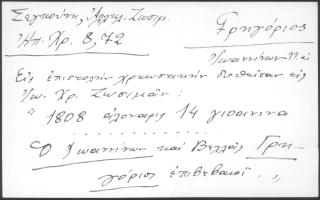 Σεγκούνη, Ἀλληλ. Ζωσιμ.
Ἠπ. Χρ. 8, 72
Γρηγόριος
Ἰωαννίνων
Εἰς ἐπιστολὴν χρεωστικὴν δοθεῖσαν εἰς
Ἰω. Χρ. Ζωσιμᾶν:
" 1808 ἁλοναρις 14 γιοανινα
Ὁ Ἰωαννίνων καὶ Βελλᾶς Γρη-
γόριος ἐπιβεβαιοῖ . „